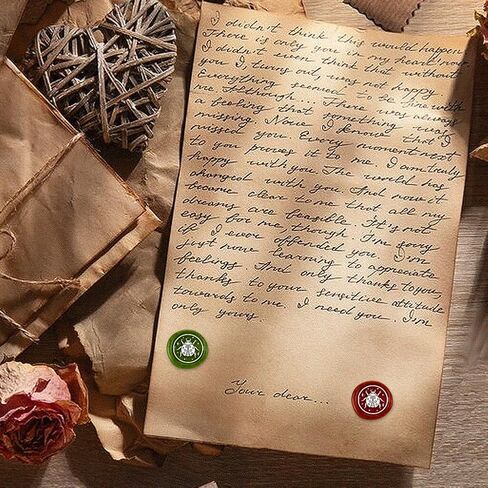 I didn't think this world happen.
There is only you in my heart now.
I didn't even think that without
you I turns out, was not happy.
Everything seemed to be fine with
me. Although... There was always
a feeling that something was
missing. Now I know that I
missed you. Every moment next
to you proves it to me. I am truly
happy with you. The world has
changed with you. And now it
became clear to me that all my
dreams are feasible. It's not
easy for me though. I'm sorry
if I ever offended you. I'm
just now learning to appreciate
feelings. And only thanks to you,
thanks to your sensitive attitude
towards to me. I need you. I'm
only yours.
Your dear...